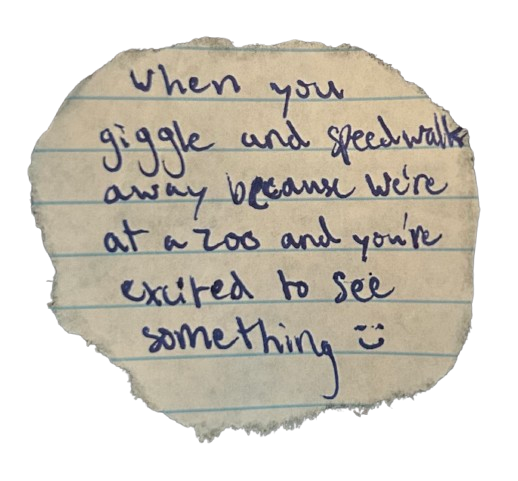 when you
giggle and speedwalk
away because we're
at a zoo and you're
excited to see
something :)